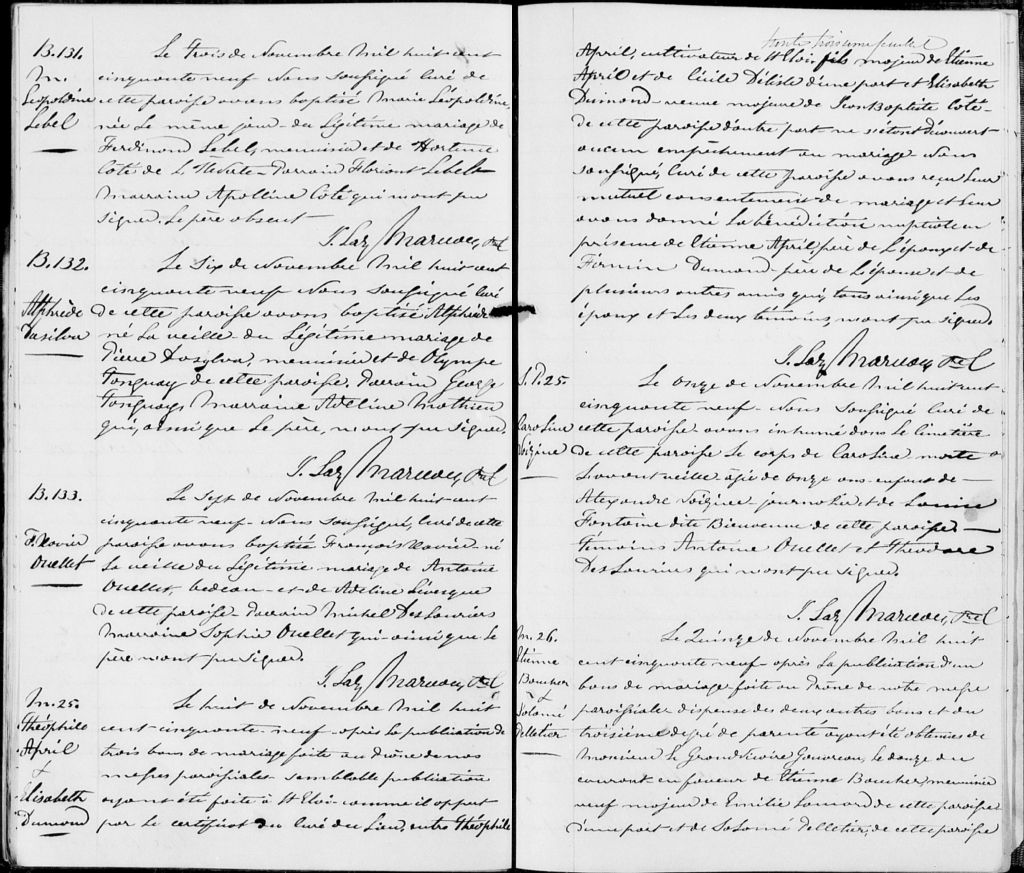 B.131.
M.
Léopoldine
Lebel
Le trois de Novembre mil huit cent
cinquante neuf Nous Soussigné Curé de
cette paroisse avons baptisé Marie Léopoldine
née le même jour du légitime mariage de
Ferdinand Lebel, menuisier et de Hortense
Côté de Parrain Florient Lebel
Marraine Apolline Côté qui n'ont pu
signer. Le père absent
J. Laz. Marceau, Ptre C
B.132.
Alphrède
Dasilva
Le Six de Novembre mil huit cent
cinquante neuf Nous Soussigné Curé
de cette paroisse avons baptisé Alphrède
né la veille du Légitime mariage de
Pierre Dasylva, menuisier et de Olympe
Tanguay de cette paroisse. Parrain George
Tanguay, Marraine Adeline Mathieu
qui, ainsi que le père, n'ont pu signer.
J. Laz. Marceau, Ptre C
B.133.
F. Xavier
Ouellet
Le Sept de Novembre mil huit cent
cinquante neuf Nous Soussigné, Curé de cette
paroisse avons baptisé François Xavier né
la veille du Légitime mariage de Antoine
Ouellet, bedeau et de Adeline Lévesque
de cette paroisse Parrain Michel DesLauriers
Marraine Sophie Ouellet qui ainsi que le
père n'ont pu signer.
J. Laz. Marceau, Ptre C
M.25.
Théophile
April
&
Elisabeth
Dumond
Le huit de Novembre mil huit
cent cinquante neuf après la publication de
trois bans de mariage faite au Prône de nos
messes paroissiales semblable publication
ayant été faite à St Eloi comme il appert
par le certificat du Curé du Lieu, entre Théophile
trente troisième feuillet
April, cultivateur de St Eloi, fils majeur de Etienne
April et de Cécile Délisle d'une part et Elisabeth
Dumond veuve majeure de Jean Baptiste Côté
de cette paroisse d'autre part ne s'étant découvert
aucun empêchement au mariage Nous
soussigné, Curé de cette paroisse avons reçu leur
mutuel consentement de mariage et leur
avons donné la bénédiction nuptiale en
présence de Etienne April père de l'époux et de
Firmin Dumond père de l'épouse et de
plusieurs autres amis qui, tous ainsi que les
époux et les deux témoins, n'ont pu signer.
J. Laz. Marceau, Ptre C
S.P.25.
Caroline
Soizine
Le onze de Novembre mil huit cent
cinquante neuf Nous Soussigné Curé de
cette paroisse avons inhumé dans le cimetière
de cette paroisse le corps de Caroline morte
l'avant veille âgée de onze ans enfant de
Alexandre journalier et de Louise
Fontaine dite Bienvenue de cette paroisse.
Témoins Antoine Ouellet et Théodore
DesLauriers qui n'ont pu signer.
J. Laz. Marceau, Ptre C
M.26.
Etienne
Boucher
&
Salomé
Pelletier
Le Quinze de Novembre mil huit
cent cinquante neuf après la publication d'un
bans de mariage faite au Prône de notre messe
paroissiale dispense des deux autres bans et du
troisième degré de parenté ayant été obtenues de
Monsieur le Grand Vicaire Gauvreau, le douze du
courant en faveur de Etienne Boucher menuisier
veuf majeur de Emilie Lamond de cette paroisse
d'une part et de Salomé Pelletier, de cette paroisse